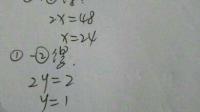 2x=48
x=24
①-②得:
2y=2
y=1